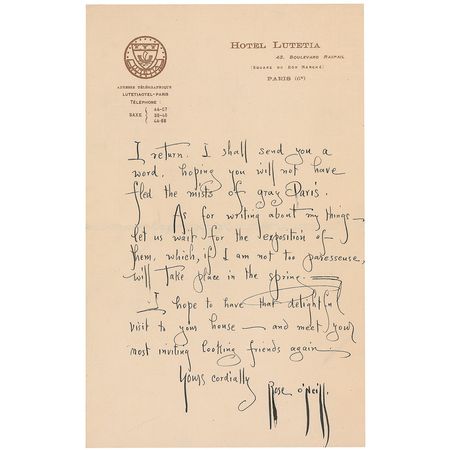 HOTEL LUTETIA
43, BOULEVARD RASPAIL
(SQUARE DU BON MARCHÉ)
PARIS (6e)
ADRESSE TÉLÉGRAPHIQUE
LUTETIAOTEL-PARIS
TÉLÉPHONE:
SAXE
I return. I shall send you a
word, hoping you will not have
fled the mists of gray Paris.
As for writing about my things—
let us wait for the exposition of
them, which, if I am not too paresseuse,
will take place in the spring.
I hope to have that delightful
visit to your house — and meet your
most inviting looking friends again
Yours cordially
Rose O'Neill.